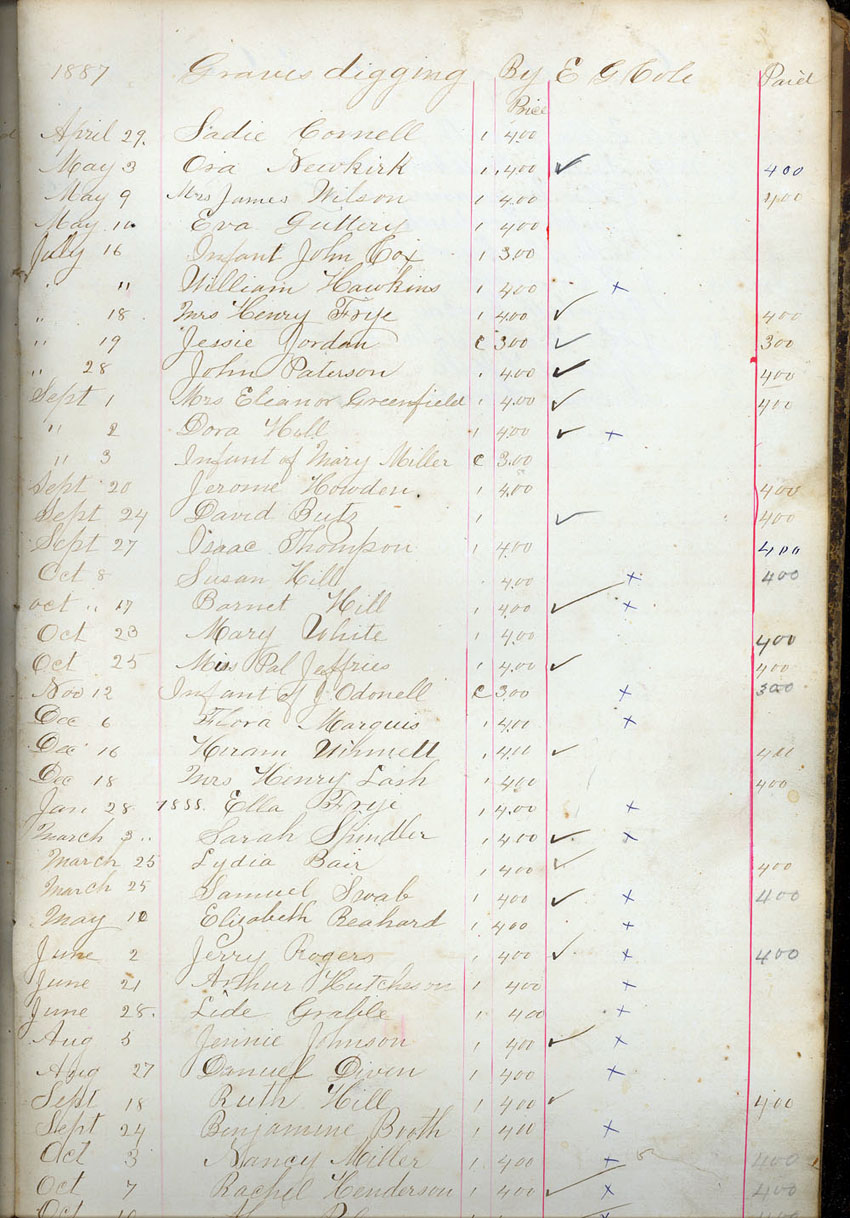 1887 Graves digging By E G Cole Paid
Price
April 29. Sadie Cornell 1 4.00
May 3 Ora Newkirk 1 4.00 ✓ 400
May 9 Mrs James Wilson 1 4.00 400
May 10 Eva Guttery 1 400
July 16 Infant John Cox 1 3.00
" " William Hawkins 1 4.00 x
" 18. Mrs Henry Frye 1 4.00 ✓ 400
" 19 Jessie Jordan C 3.00 ✓ 300
" 28 John Paterson 1 4.00 ✓ 400
Sept 1 Mrs Eleanor Greenfield 1 4.00 ✓ 400
" 2 Dora Hill 1 4.00 ✓ x
" 3 Infant of Mary Miller C 3.00
Sept 20 Jerome Howden. 1 4.00 400
Sept 24 David Buts 1 ✓ 400
Sept 27 Isaac Thompson 1 4.00 400
Oct 8 Susan Hill 4.00 x 400
oct " 17 Barnet Hill 1 4.00 ✓ x
Oct 23 Mary White 1 4.00 400
Oct 25 Miss Pal Jeffries 1 4.00 ✓ 400
Nov 12 Infant of J. Odonell C 3.00 x 300
Dec 6 Flora Marquis 1 4.00 x
Dec 16 Hiram 1 4.00 ✓ 400
Dec 18 Mrs Henry Lash 1 400 400
Jan 28 1888. Ella Frye 1 4.00 x
March 3 Sarah Spindler 1 400 ✓ x
March 25 Lydia Bair 1 400 ✓ 400
March 25 Samuel Swab 1 400 ✓ x 400
May 10 Elisabeth Beahard 1 400 x
June 2 Jerry Rogers 1 400 ✓ x 400
June 21 Arthur Hutcheson 1 400 x
June 28. Lide Grable 1 400 x
Aug 5 Jennie Johnson 1 400 ✓ x
Aug 27 Danuel Diven 1 400 x
Sept 18 Ruth Hill 1 400 ✓ 400
Sept 24 Benjamine Booth 1 400 x
Oct 3 Nancy Miller 1 400 x 400
Oct 7 Rachel Henderson 1 400 ✓ x 400
Oct